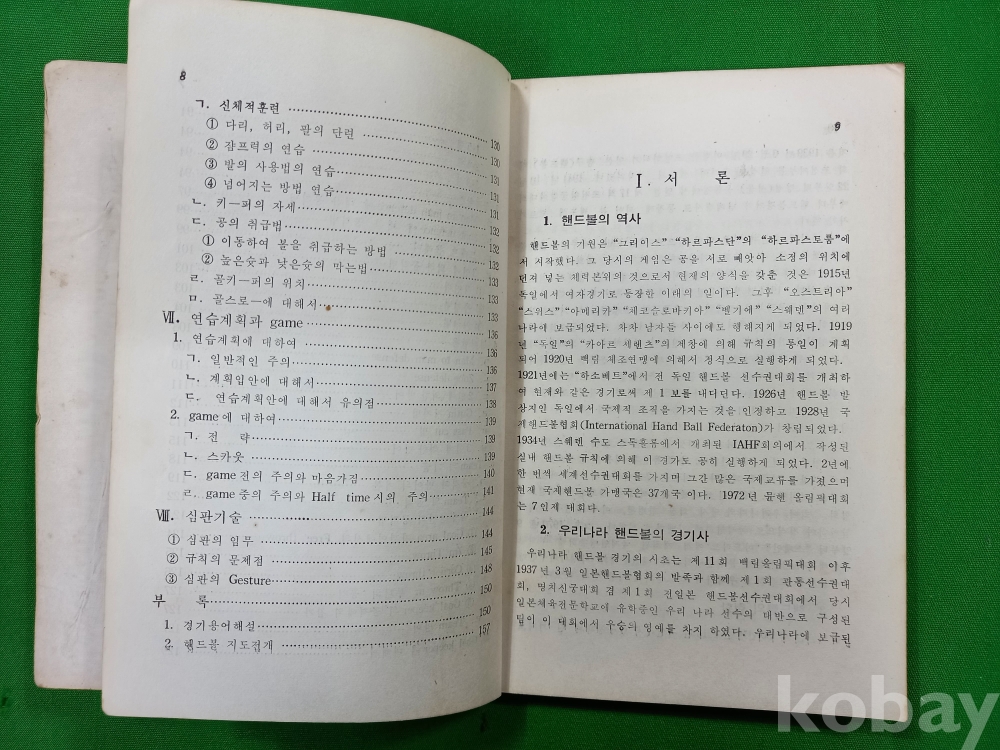 8
ㄱ. 신체적훈련 130
① 다리, 허리, 팔의 단련 130
② 쟘프력의 연습 131
③ 발의 사용법의 연습 131
④ 넘어지는 방법 연습 131
ㄴ. 키ㅡ퍼의 자세 132
ㄷ. 공의 취급법 132
① 이동하여 볼을 취급하는 방법 132
② 높은슛과 낮은슛의 막는법 133
ㄹ. 골키ㅡ퍼의 위치 133
ㅁ. 골스로ㅡ에 대해서 133
Ⅶ. 연습계획과 game 136
1. 연습계획에 대하여 136
ㄱ. 일반적인 주의 136
ㄴ. 계획입안에 대해서 137
ㄷ. 연습계획안에 대해서 유의점 138
2. game에 대하여 139
ㄱ. 전 략 139
ㄴ. 스카웃 139
ㄷ. game전의 주의와 마음가짐 140
ㄹ. game중의 주의와 Half time시의 주의 141
Ⅷ. 심판기술 144
① 심판의 임무 144
② 규칙의 문제점 145
③ 심판의 Gesture 148
부 록 150
1. 경기용어해설 150
2. 핸드볼 지도점개 157
9
Ⅰ. 서 론
1. 핸드볼의 역사
핸드볼의 기원은 “그리이스” “하르파스탄”의 “하르파스토룸”에
서 시작했다. 그 당시의 게임은 공을 서로 빼앗아 소정의 위치에
던져 넣는 체력본위의 것으로서 현재의 양식을 갖춘 것은 1915년
독일에서 여자경기로 등장한 이래의 일이다. 그후 “오스트리아”
“스위스” “아메리카” “체코슬로바키아” “벨기에” “스웨덴”의 여러
나라에 보급되었다. 차차 남자들 사이에도 행해지게 되었다. 1919
년 “독일”의 “카아르 세렌츠”의 제창에 의해 규칙의 통일이 계획
되어 1920년 백림 체조연맹에 의해서 정식으로 실행하게 되었다.
1921년에는 “하소베트”에서 전 독일 핸드볼 선수권대회를 개최하
여 현재와 같은 경기로써 제 1 보를 내디딘다. 1926년 핸드볼 발
상지인 독일에서 국제적 조직을 가지는 것을 인정하고 1928년 국
제핸드볼협회(International Hand Ball Federaton)가 창립되었다.
1934년 스웨덴 수도 스톡홀롬에서 개최된 IAHF회의에서 작성된
실내 핸드볼 규칙에 의해 이 경기도 공히 실행하게 되었다. 2년에
한 번씩 세계선수권대회를 가지며 그간 많은 국제교류를 가졌으며
현재 국제핸드볼 가맹국은 37개국 이다. 1972년 뮨헨 올림픽대회
는 7인제 대회다.
2. 우리나라 핸드볼의 경기사
우리나라 핸드볼 경기의 시초는 제 11회 백림올림픽대회 이후
1937년 3월 일본핸드볼협회의 발족과 함께 제 1회 관동선수권대
회, 명치신궁대회 겸 제 1회 전일본 핸드볼선수권대회에서 당시
일본체육전문학교에 유학중인 우리 나라 선수의 태반으로 구성된
팀이 이 대회에서 우승의 영예를 차지 하였다. 우리나라에 보급된
kobay